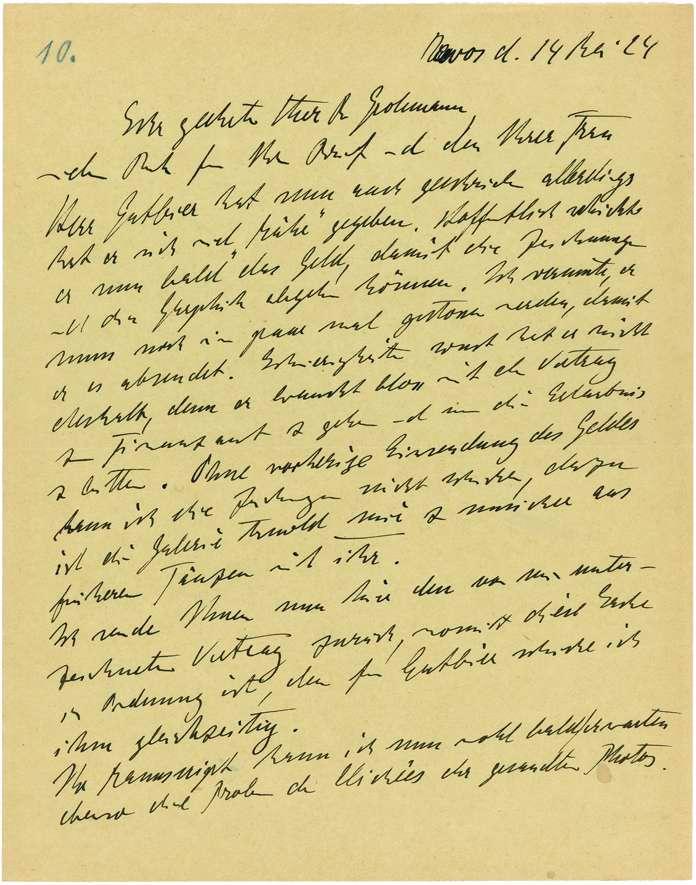 10.
Davos d. 14 Mai 24
Sehr geehrter Herr Dr Grohmann,
vielen Dank für Ihren Brief und den Ihrer Frau
Herr Gutbier hat nun auch geschrieben allerdings
hat er sich viel „Mühe" gegeben. Hoffentlich schickt
er nun bald das Geld, damit die Zeichnungen
und die Graphik abgehen können. Ich vermute, er
muss noch ein paar mal gestossen werden, damit
er es absendet. Schwierigkeiten sonst hat er nicht
deshalb, denn er braucht bloss mit dem Vertrag
z Finanzamt z gehen und um die Erlaubnis
z bitten. Ohne vorherige Einsendung des Geldes
kann ich die Zeichnungen nicht schicken, dazu
ist die Galerie Arnold mir z unsicher aus
früheren Tänzen mit ihr.
Ich sende Ihnen nun hier den von mir unter-
zeichneten Vertrag zurück, womit diese Sache
in Ordnung ist, den für Gutbier schicke ich
ihm gleichzeitig.
Ihr Manuscript kann ich nun wohl bald erwarten
ebenso die Proben der Clichées der gesandten Photos.